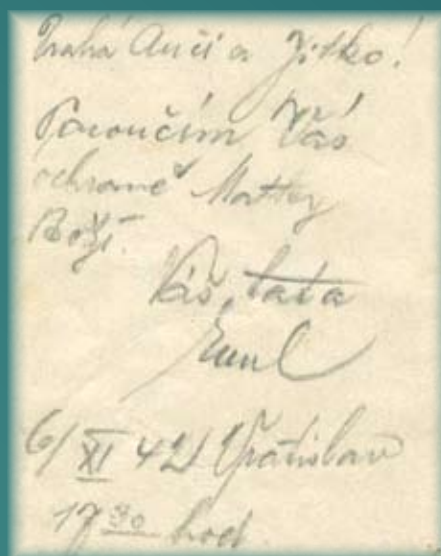 Drahá Anči a Jitko!
Poroučím Vás
ochraně Matky
Boží.
Váš táta
Emil
6/XI 42 Vratislav
17 30 hod.